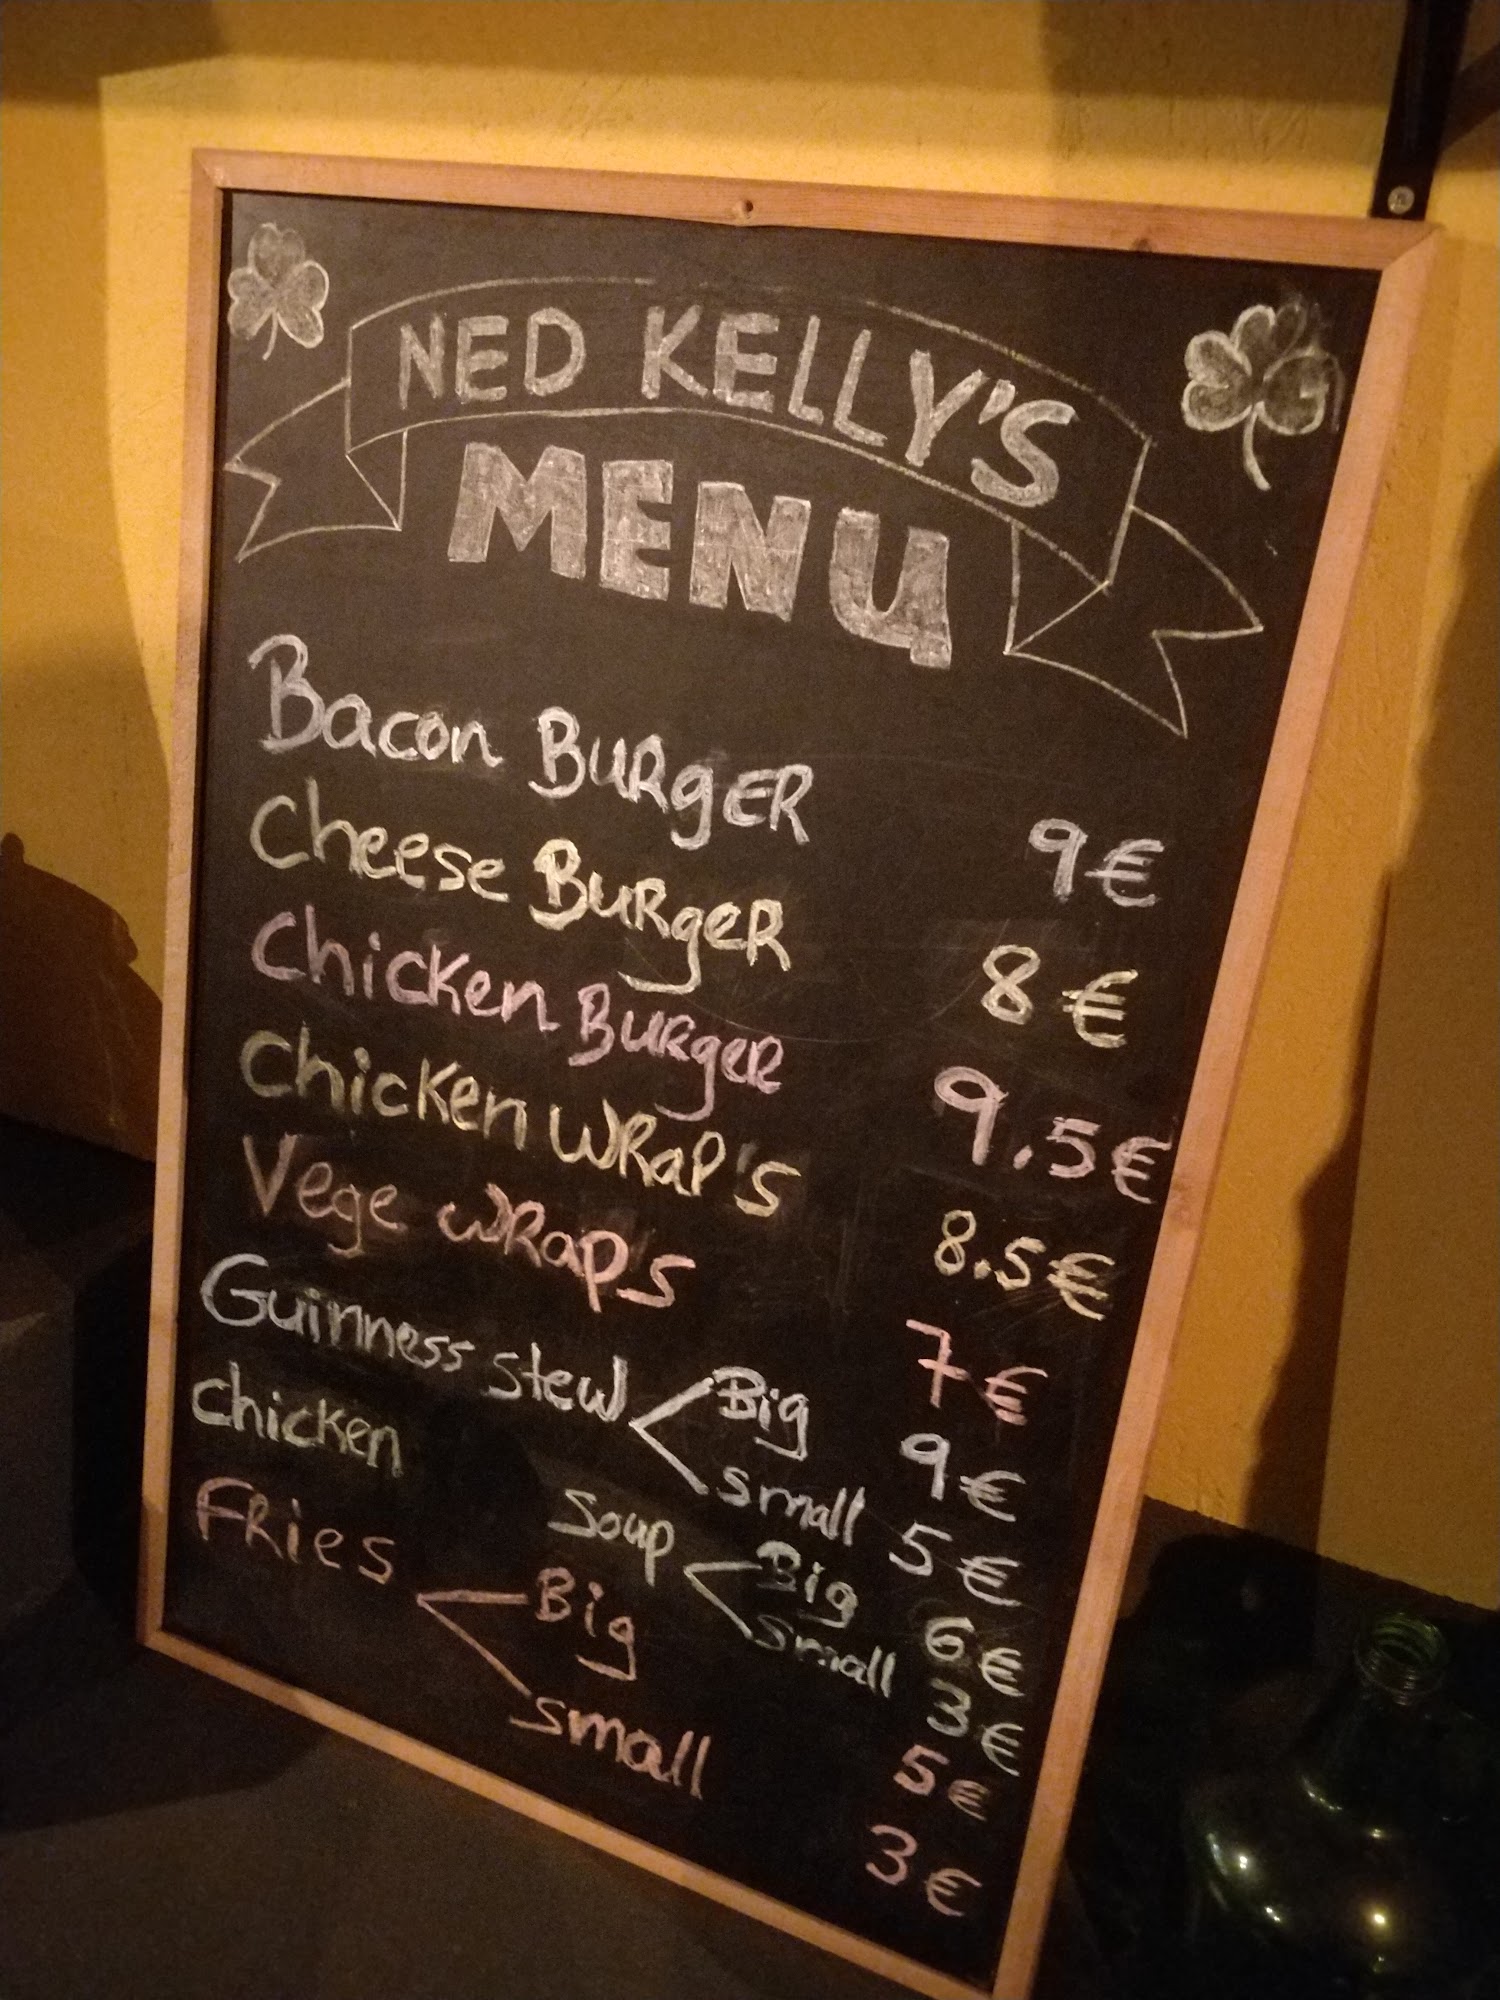 NED KELLY'S
MENU
Bacon BURgER 9€
Cheese BURgeR 8€
Chicken BURgeR 9.5€
Chicken WRaP's 8.5€
Vege WRaps 7€
Guinness stew Big 9€
small 5€
Chicken Soup Big 6€
small 3€
FRies Big 5€
small 3€